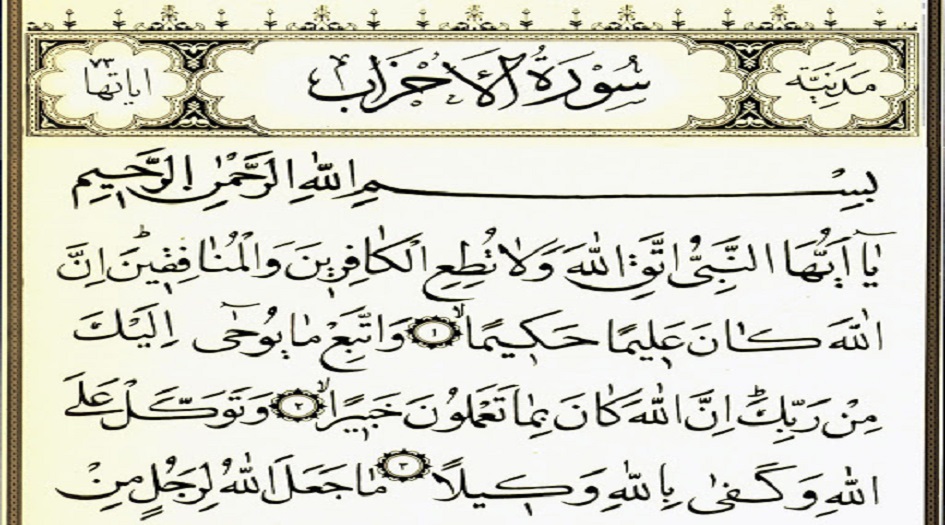 مَدَنِيَّة
سُورَةُ الْأَحْزَابِ
اٰيَاتُهَا ٧٣
بِسْمِ اللّٰهِ الرَّحْمٰنِ الرَّحِيمِ
يَٓا اَيُّهَا النَّبِيُّ اتَّقِ اللّٰهَ وَلَا تُطِعِ الْكَافِرِينَ وَالْمُنَافِقِينَۜ اِنَّ
اللّٰهَ كَانَ عَلِيمًا حَكِيمًاۙ ﴿١﴾ وَاتَّبِعْ مَا يُوحٰٓى اِلَيْكَ
مِنْ رَبِّكَۜ اِنَّ اللّٰهَ كَانَ بِمَا تَعْمَلُونَ خَبِيرًاۙ ﴿٢﴾ وَتَوَكَّلْ عَلَى
اللّٰهِ وَكَفٰى بِاللّٰهِ وَكِيلًا ﴿٣﴾ مَا جَعَلَ اللّٰهُ لِرَجُلٍ مِنْ